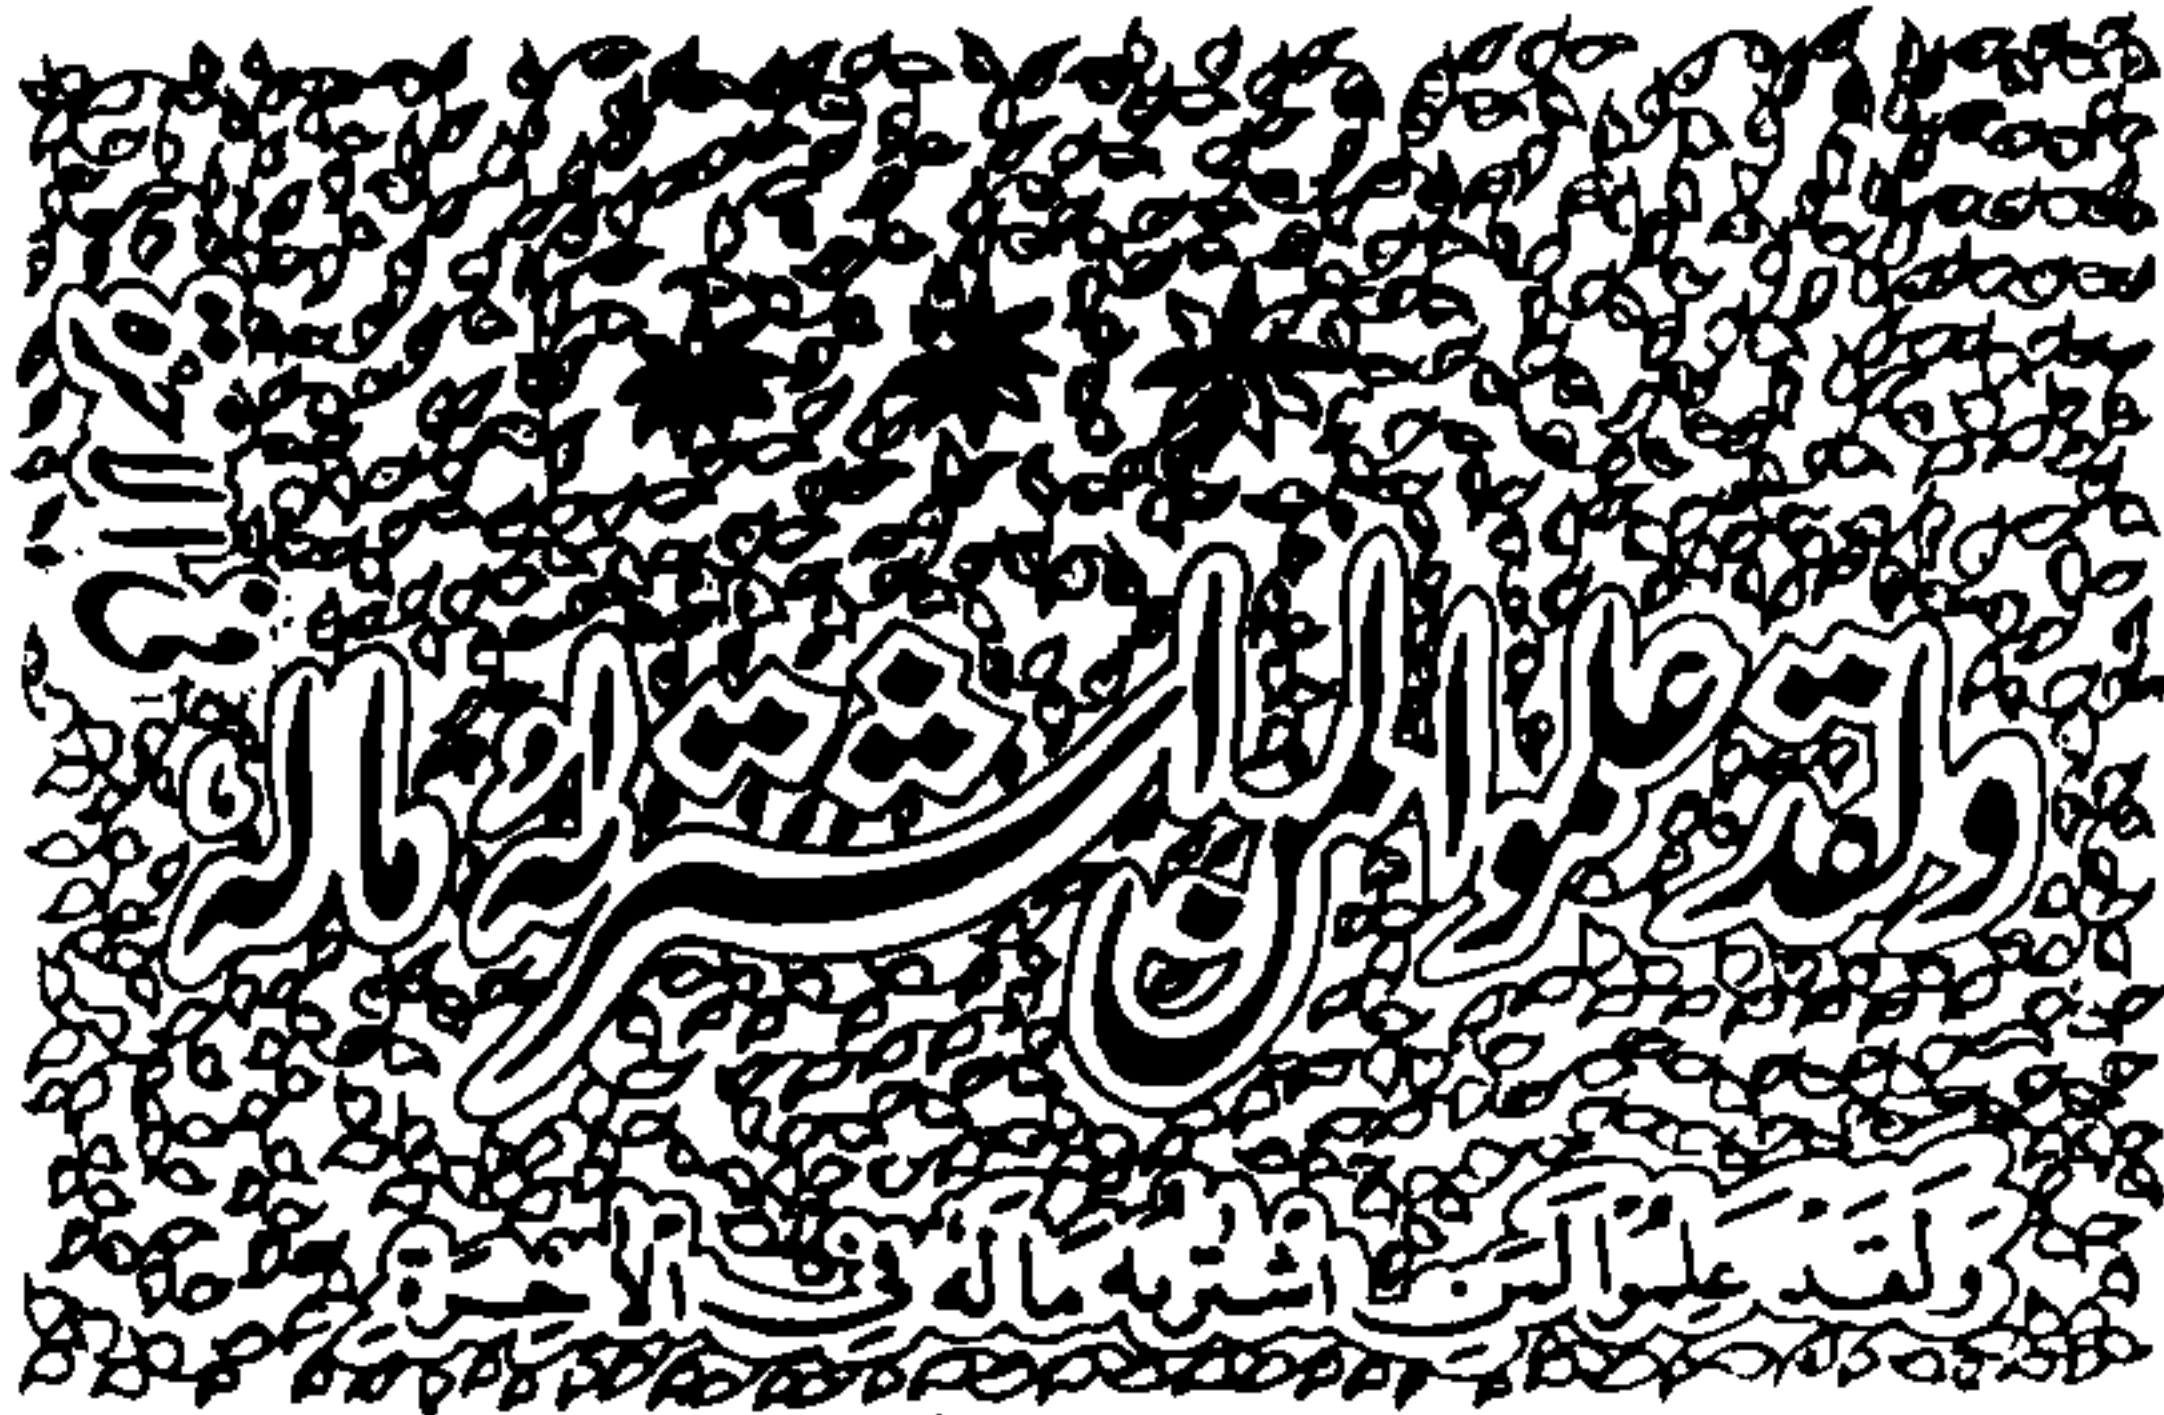 ولقد علموا لمن اشتريه ماله
ولقد علموا لمن اشتريه ماله في الآخرة